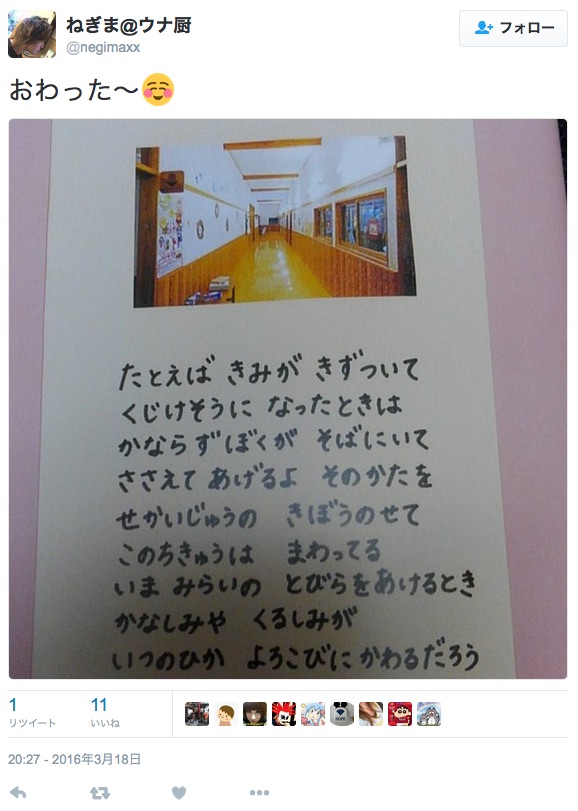 ねぎま@ウナ厨
@negimaxx
フォロー
おわった〜☺️
たとえば きみが きずついて
くじけそうに なったときは
かならずぼくが そばにいて
ささえて あげるよ そのかたを
せかいじゅうの きぼうのせて
このちきゅうは まわってる
いま みらいの とびらをあけるとき
かなしみや くるしみが
いつのひか よろこびに かわるだろう
1
リツイート
11
いいね
20:27 - 2016年3月18日